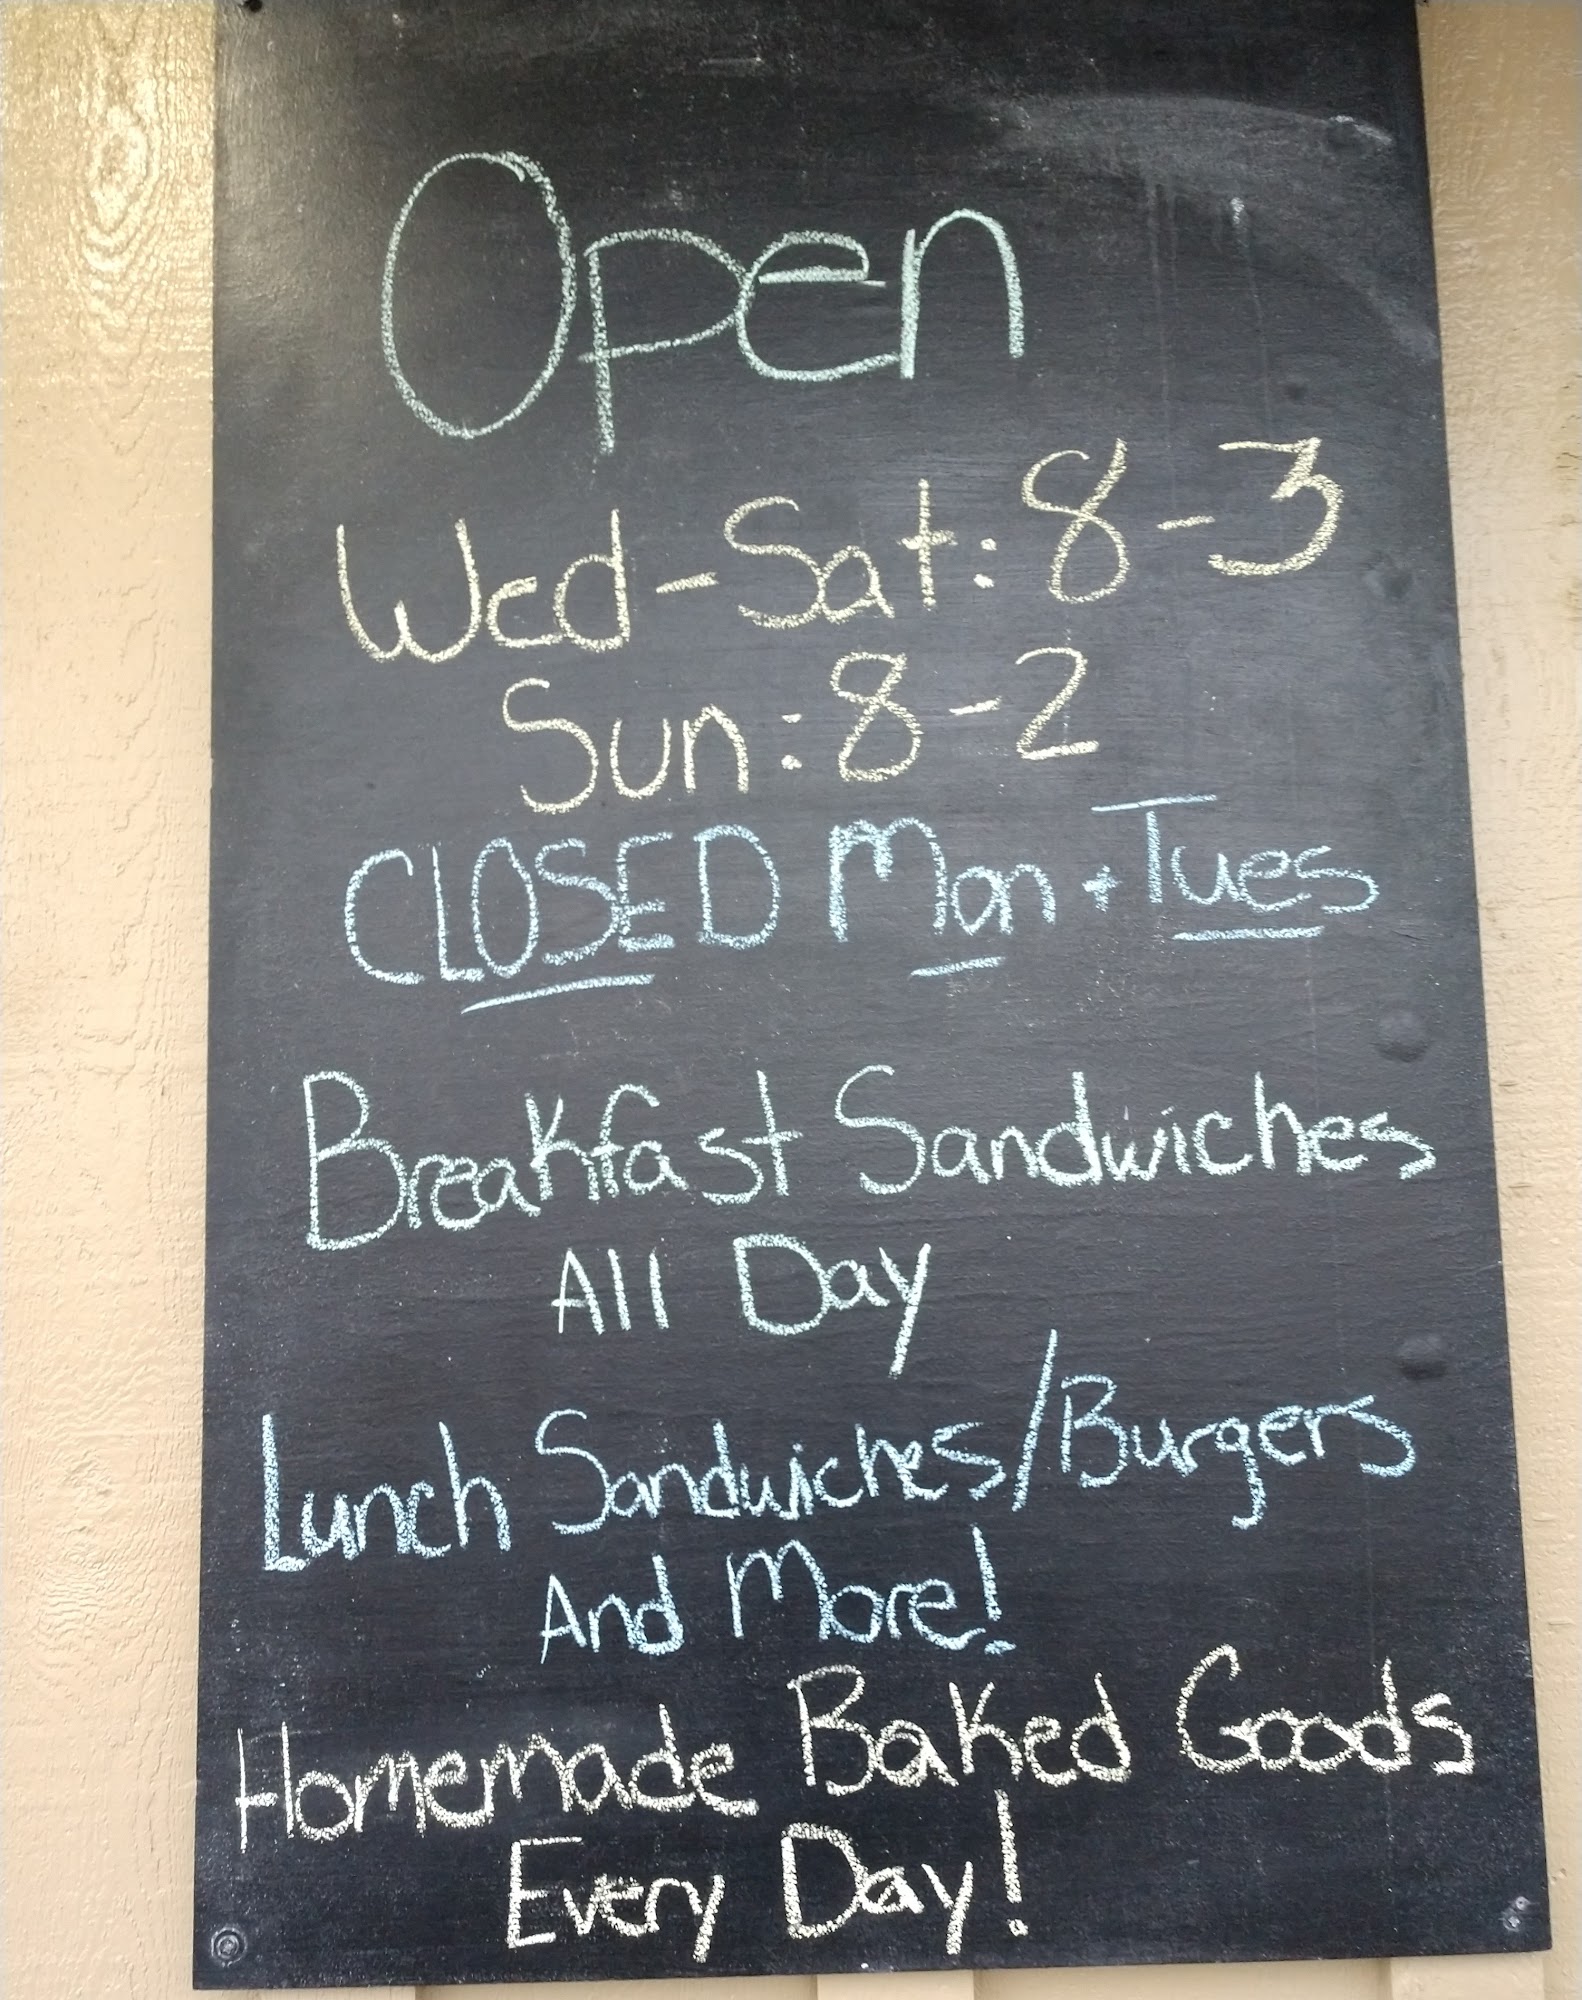 Open
Wed-Sat: 8-3
Sun: 8-2
CLOSED Mon + Tues
Breakfast Sandwiches
All Day
Lunch Sandwiches/Burgers
And More!
Homemade Baked Goods
Every Day!